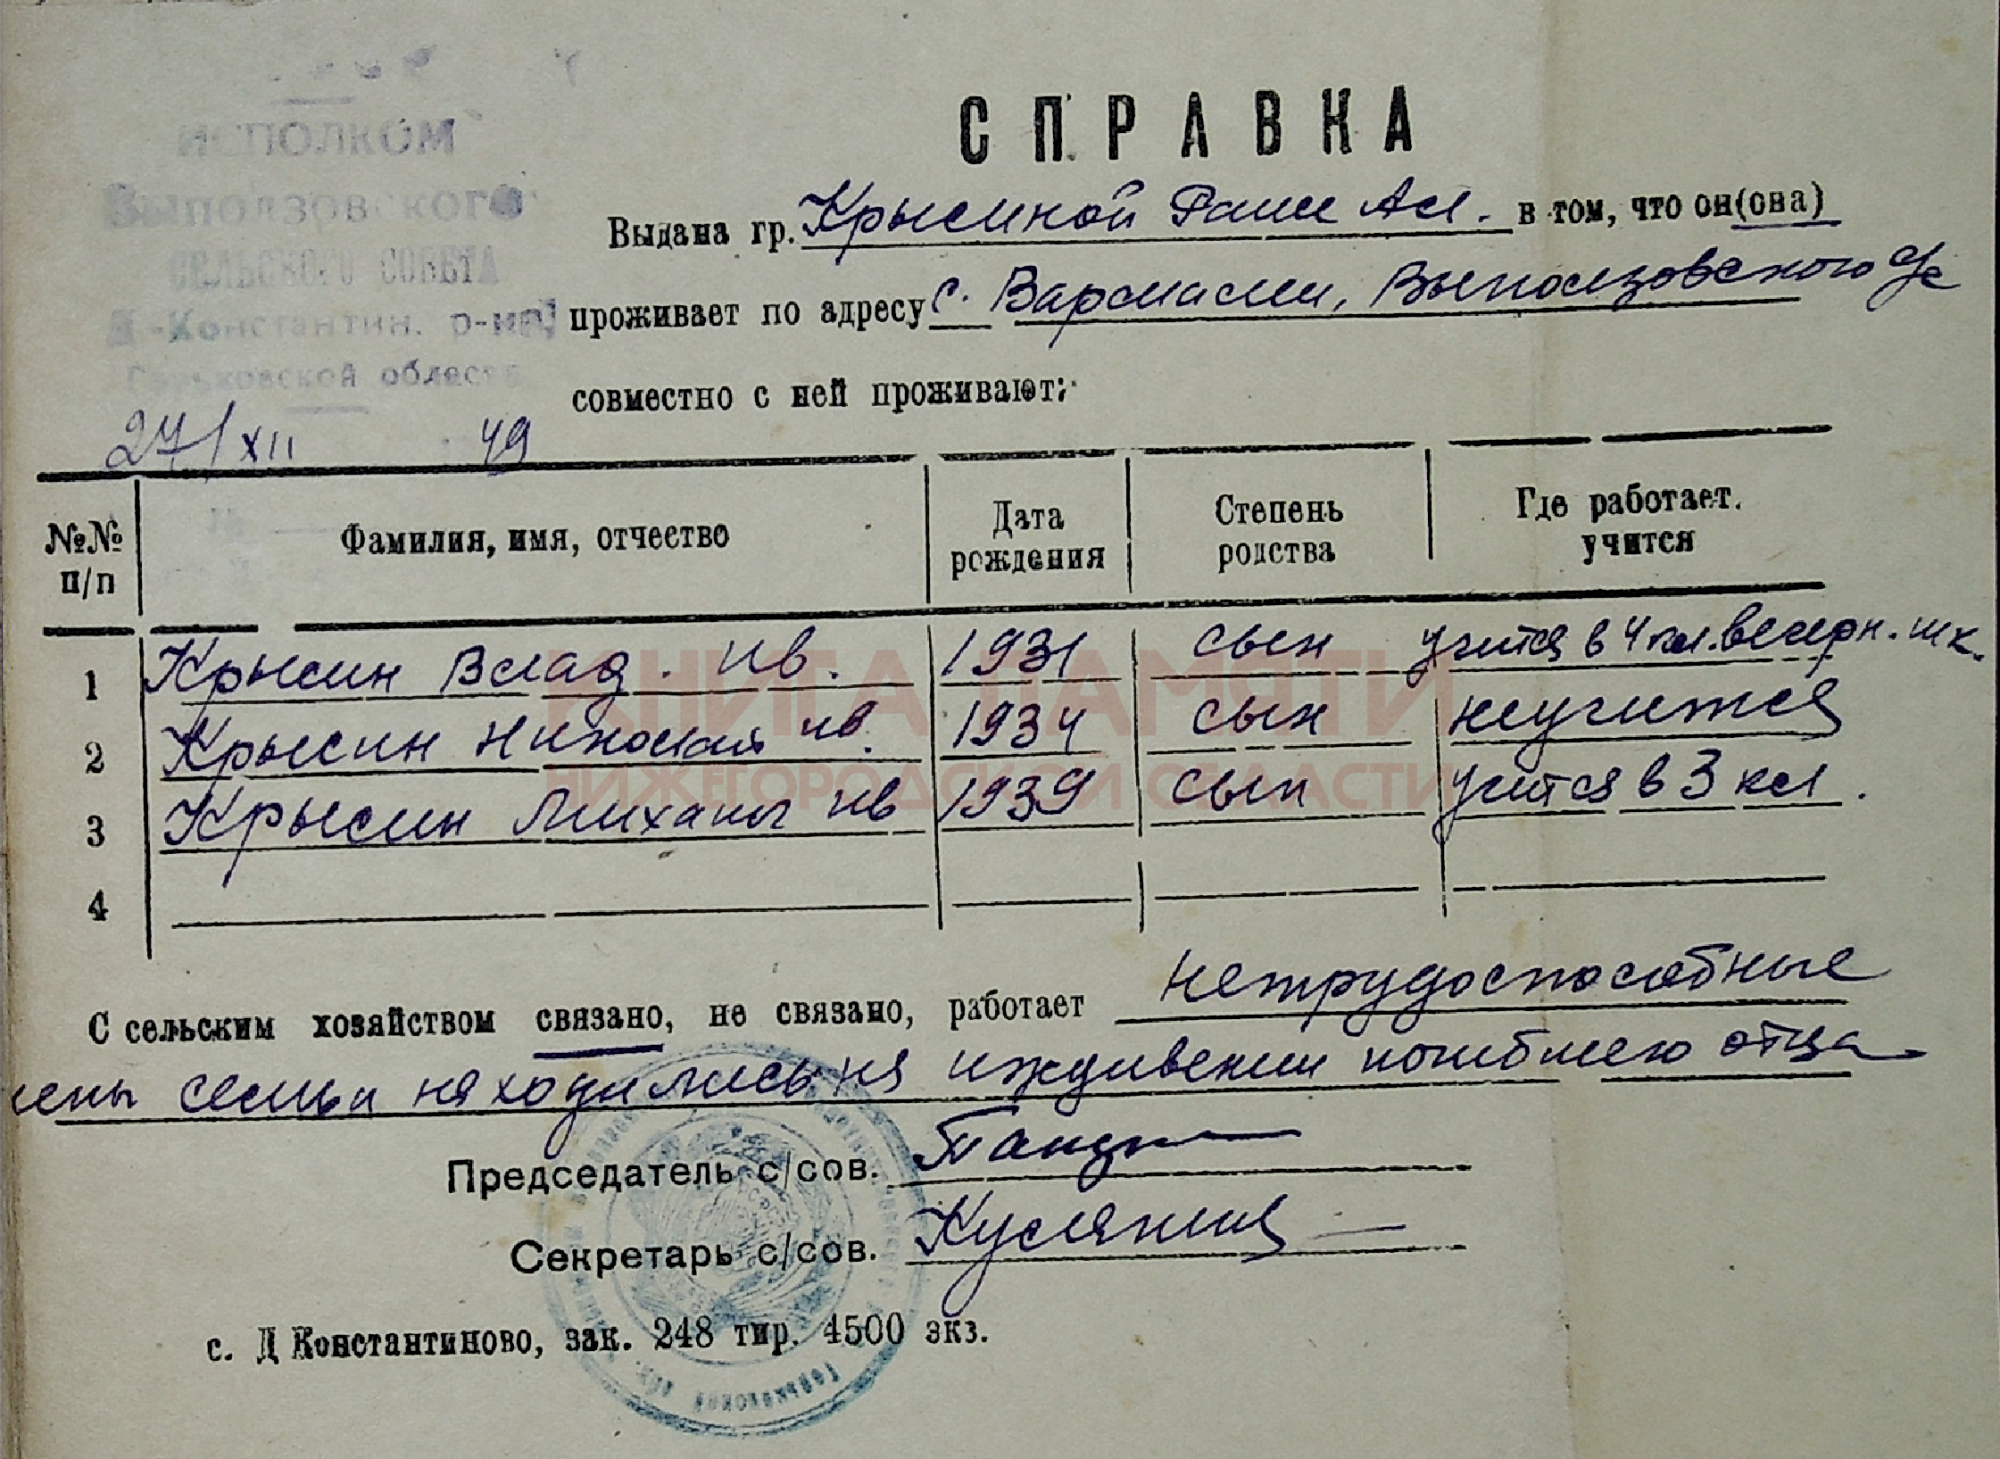 СПРАВКА
ИСПОЛКОМ
Выползовского
СЕЛЬСКОГО СОВЕТА
Д.-Константин. р-на,
Горьковской области
27/XII 49
Выдана гр. Крысиной Раисе Ал. в том, что он(она)
проживает по адресу с. Вармалеи, Выползовского с/с
совместно с ней проживают:
№№ п/п Фамилия, имя, отчество Дата рождения Степень родства Где работает. учится
1 Крысин Влад. Ив. 1931 сын учится в 4 кл. вечерн. шк.
2 Крысин Николай Ив. 1934 сын неучится
3 Крысин Михаил Ив 1939 сын учится в 3 кл.
4
КНИГА ПАМЯТИ
НИЖЕГОРОДСКОЙ ОБЛАСТИ
С сельским хозяйством связано, не связано, работает нетрудоспособные
члены семьи находились на иждивении погибшего отца
Председатель с/сов.
Секретарь с/сов.
с. Д Константиново, зак. 248 тир. 4500 экз.